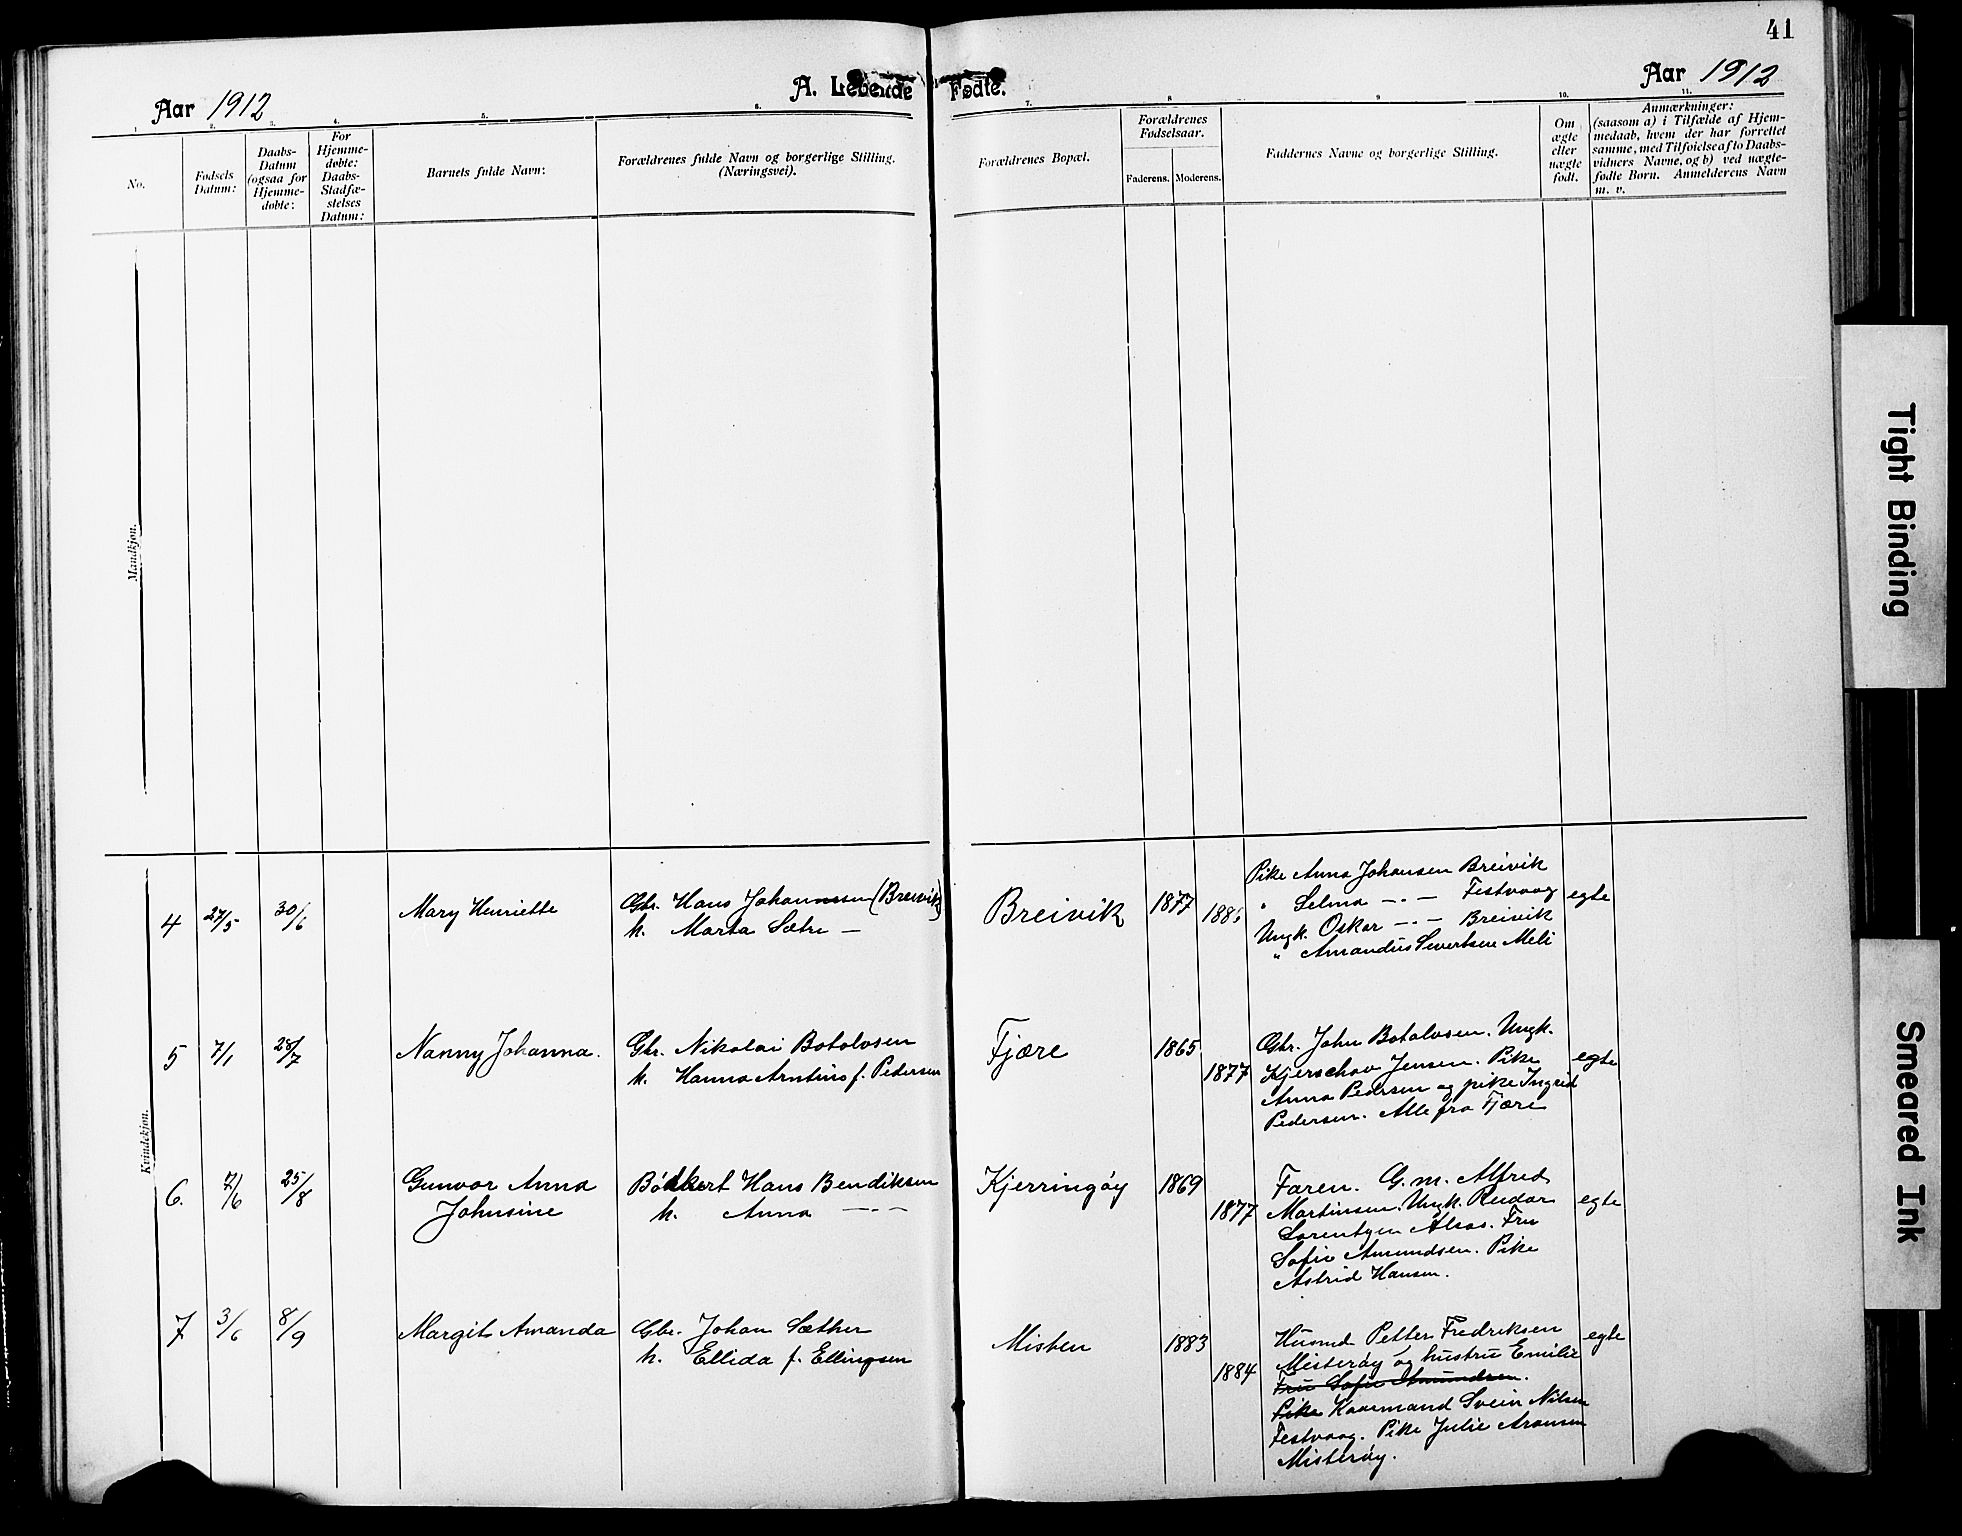 41
Aar 1912
A. Levende Fødte.
Aar 1912
1. 2. 3. 4. 5. 6. 7. 8. 9. 10. 11.
No.
Fødsels Datum:
Daabs-Datum (ogsaa for Hjemme-døbte:
For Hjemme-døbte: Daabs-Stadfæ-stelses Datum:
Barnets fulde Navn:
Forældrenes fulde Navn og borgerlige Stilling.
(Næringsvei).
Forældrenes Bopæl.
Forældrenes Fødselsaar.
Faderens. Moderens.
Faddernes Navne og borgerlige Stilling.
Om ægte eller uægte født.
Anmærkninger:
(saasom a) i Tilfælde af Hjem-
medaab, hvem der har forrettet
samme, med Tilføielse af to Daabs-
vidners Navne, og b) ved uægte-
fødte Børn. Anmelderens Navn
m. v.
Mandkjøn.
Kvindekjøn.
4 27/5 30/6 Mary Henriette
Gbr. Hans Johannssen (Breivik)
h. Marta Sætre —
Breivik 1877
Pike Anna Johansen Breivik
" Selma —"— Festvaag
Ungk. Oskar —"— Breivik
" Amandus Sivertsen Meli
egte
5 7/1 28/7 Nanny Johanna.
Gbr. Nikolai Botolvsen
h. Hanna Arntine f. Pedersen
Fjære 1865 1877
Gbr. John Botolvsen. Ungk.
Kjerschov Jensen. Pike
Anna Pedersen og pike Ingrid
Pedersen. Alle fra Fjære
egte
6. 7/6 25/8 Gunvor Anna
Johnsine
Bødkert Hans Bendiksen
h. Anna —"—
Kjerringøy 1869 1877
Faren. G.m. Alfred
Martinsen. Ungk. Reidar
Sorentzen Alsos. Fru
Sofie Amundsen. Pike
Astrid Hansen.
egte
7 3/6 8/9 Margit Amanda
Gbr. Johan Sæther
h. Ellida f. Ellingsen
Misten 1883 1884
Husmd Petter Fredriksen
Misterøy og hustru Emilie
Fru Sofie Amundsen.
Pike Kaarmand Svein Nilsen
Festvaag. Pike Julie Aronsen
Misterøy.
egte
Tight Binding
Smeared Ink